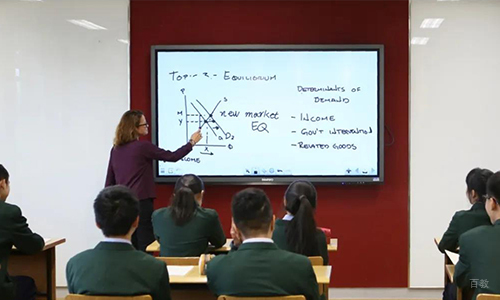 Topic 2 - Equilibrium
DETERMINANTS OF
DEMAND
P
S
M
Y
new market
EQ
- INCOME
- GOV'T INTERVENTION
- RELATED GOODS
D2
Q
X
百教